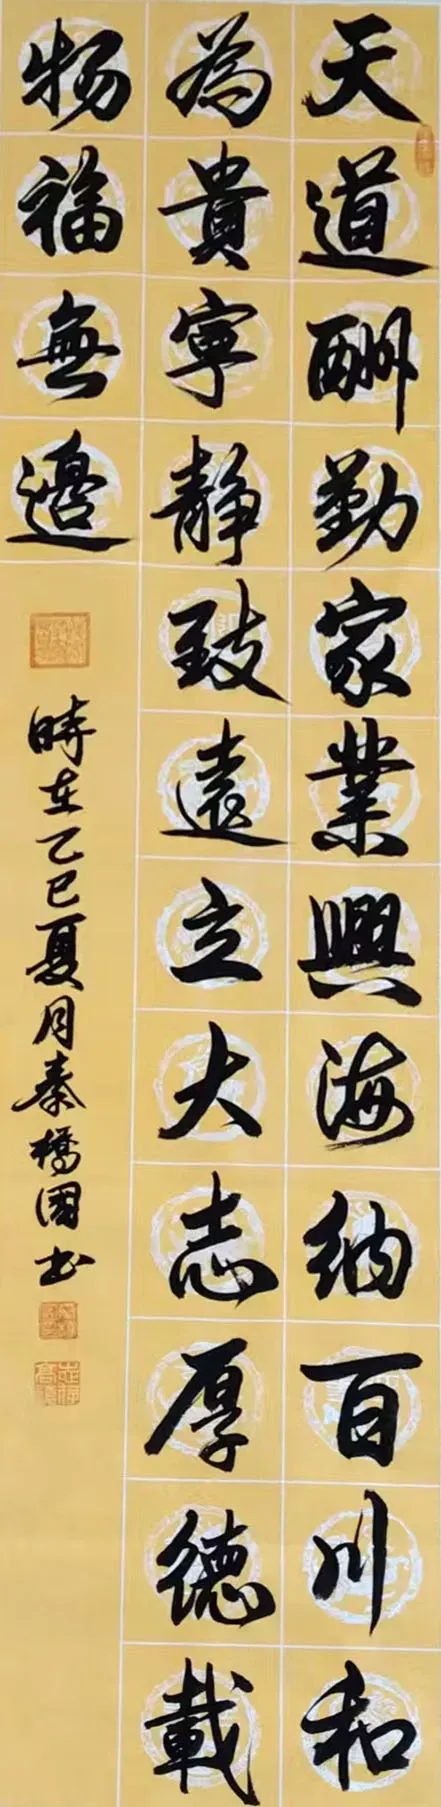 天道酬勤家業興海納百川和
為貴寧靜致遠立大志厚德載
物福無邊
時在乙巳夏月秦橋國書